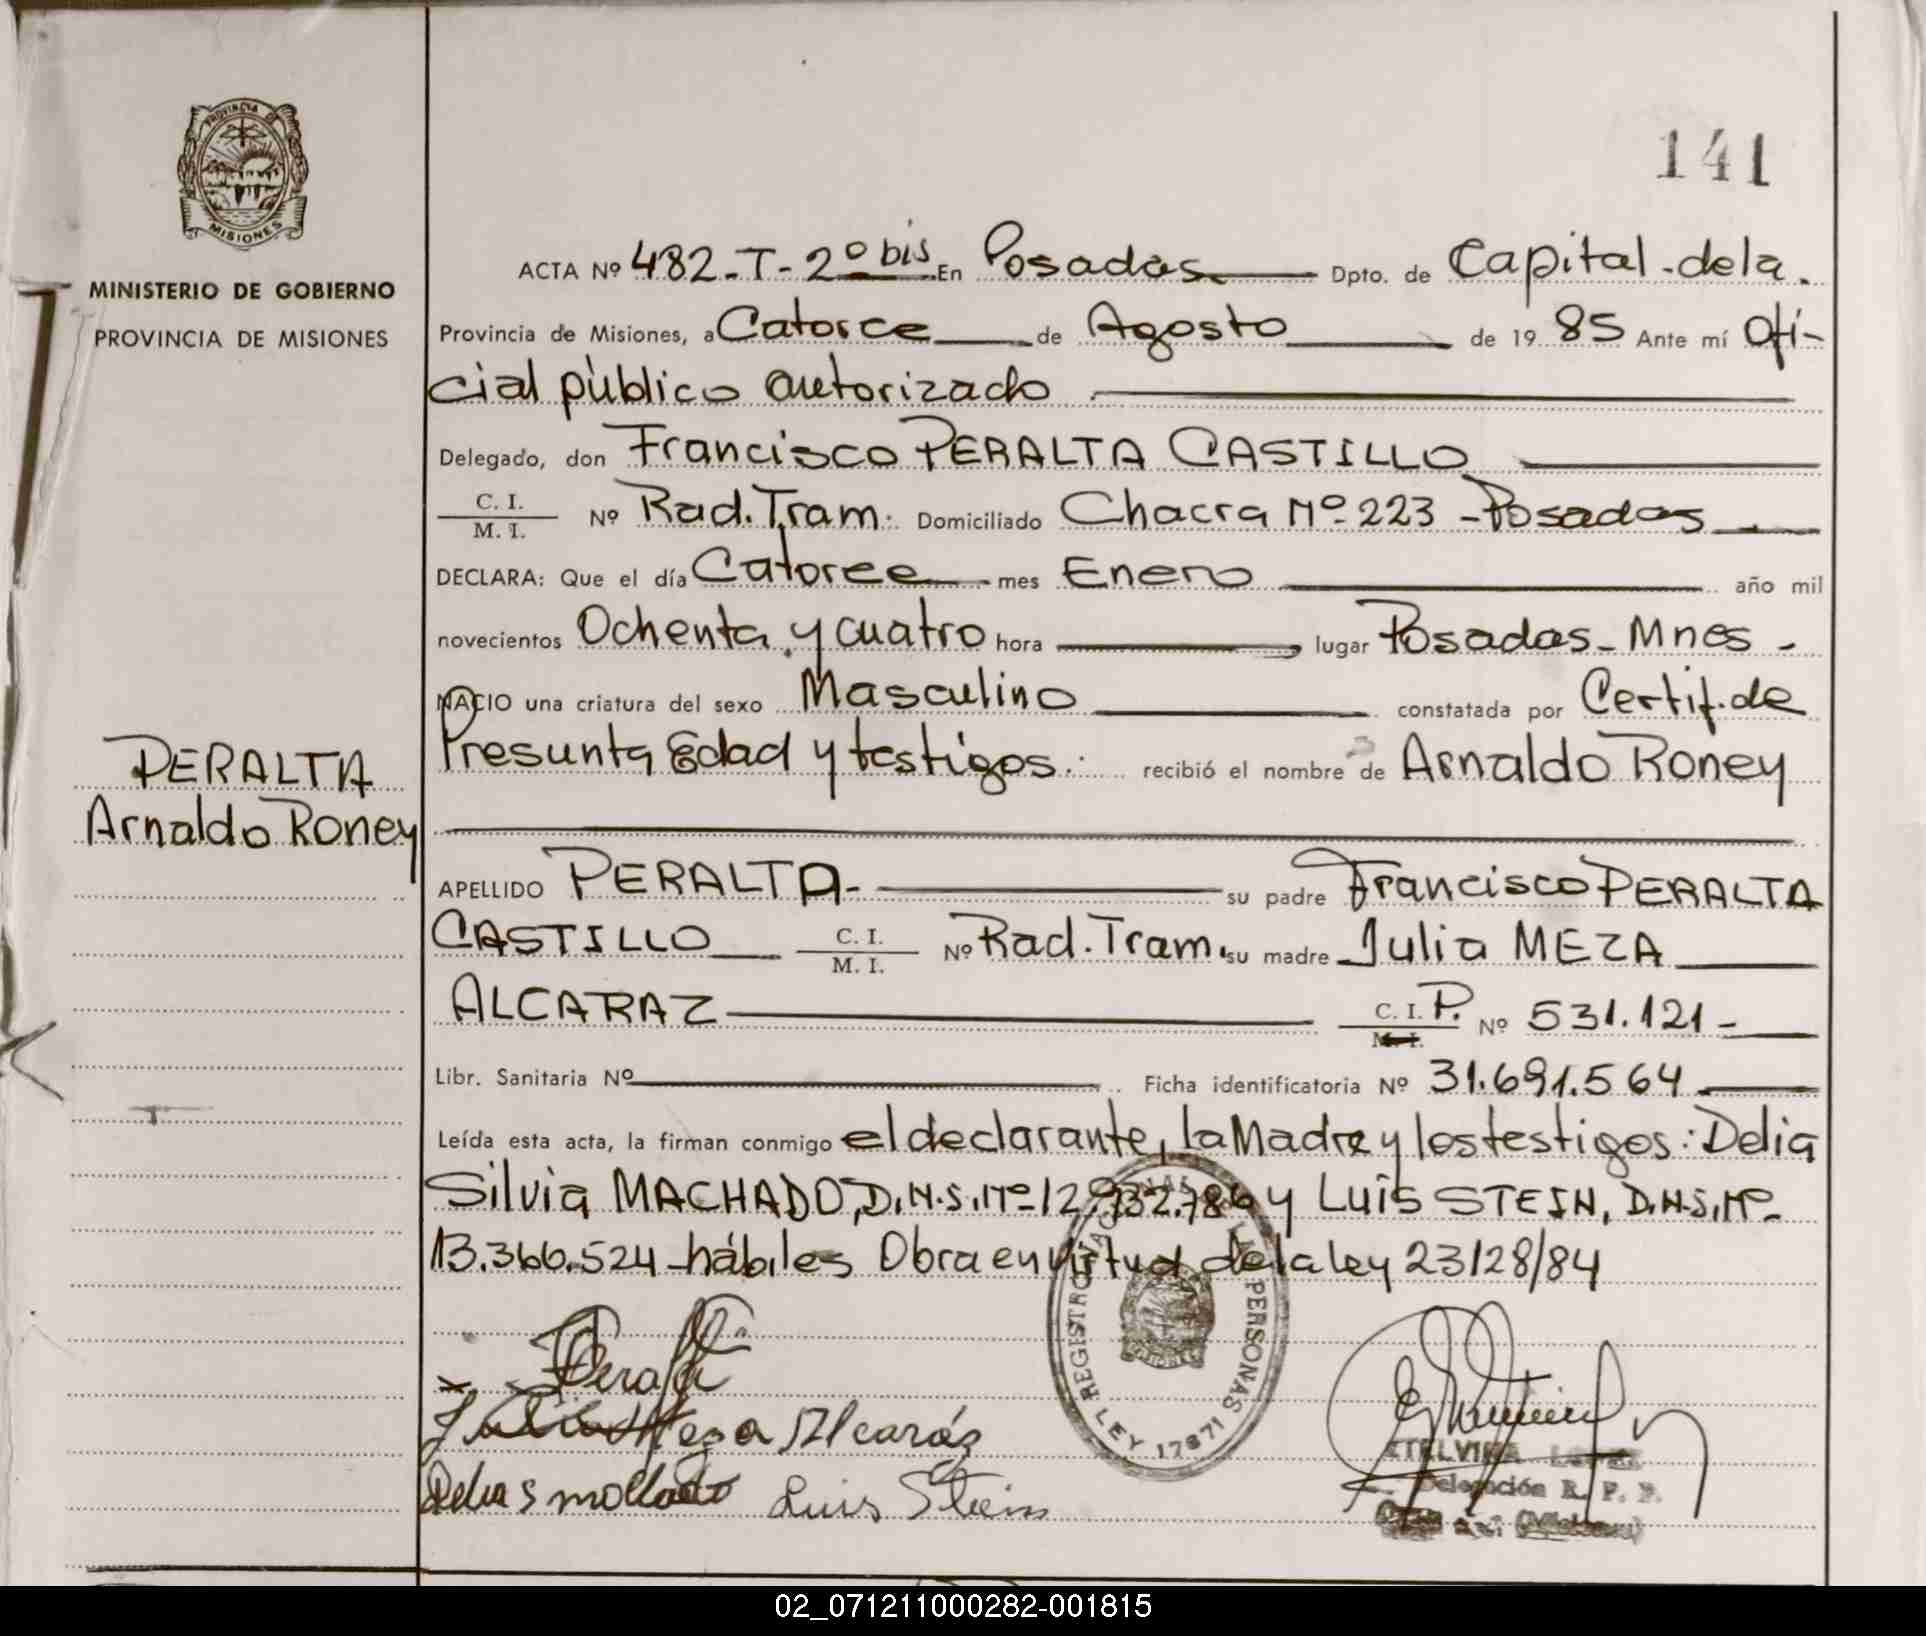 141
PROVINCIA DE
MISIONES
MINISTERIO DE GOBIERNO
PROVINCIA DE MISIONES
PERALTA
Arnaldo Roney
ACTA Nº 482-T-2º bis En Posadas Dpto. de Capital.-dela.
Provincia de Misiones, a Catorce de Agosto de 19 85 Ante mí Ofi-
cial público autorizado
Delegado, don Francisco PERALTA CASTILLO
C. I. / M. I. Nº Rad. Tram. Domiciliado Chacra Nº 223 - Posadas
DECLARA: Que el día Catorce mes Enero año mil
novecientos Ochenta y cuatro hora lugar Posadas - Mnes -
NACIO una criatura del sexo Masculino constatada por Certif. de
Presunta Edad y testigos. recibió el nombre de Arnaldo Roney
APELLIDO PERALTA- su padre Francisco PERALTA
CASTILLO C. I. / M. I. Nº Rad. Tram. su madre Julia MEZA
ALCARAZ C. I. P. / M. I. Nº 531.121-
Libr. Sanitaria Nº Ficha identificatoria Nº 31.691.564
Leída esta acta, la firman conmigo el declarante, la Madre y los testigos: Delia
Silvia MACHADO, D.N.S.Nº 12.932.786 y Luis STEIN, D.N.S.Nº
13.366.524 - hábiles Obra en virtud de la ley 23128/84
Peralta
Julia Meza Alcaráz
Luis Stein
REGISTRO PERSONAS
LEY 17671
ETELVINA
Delegación R. P. P.
(Misiones)
02_071211000282-001815